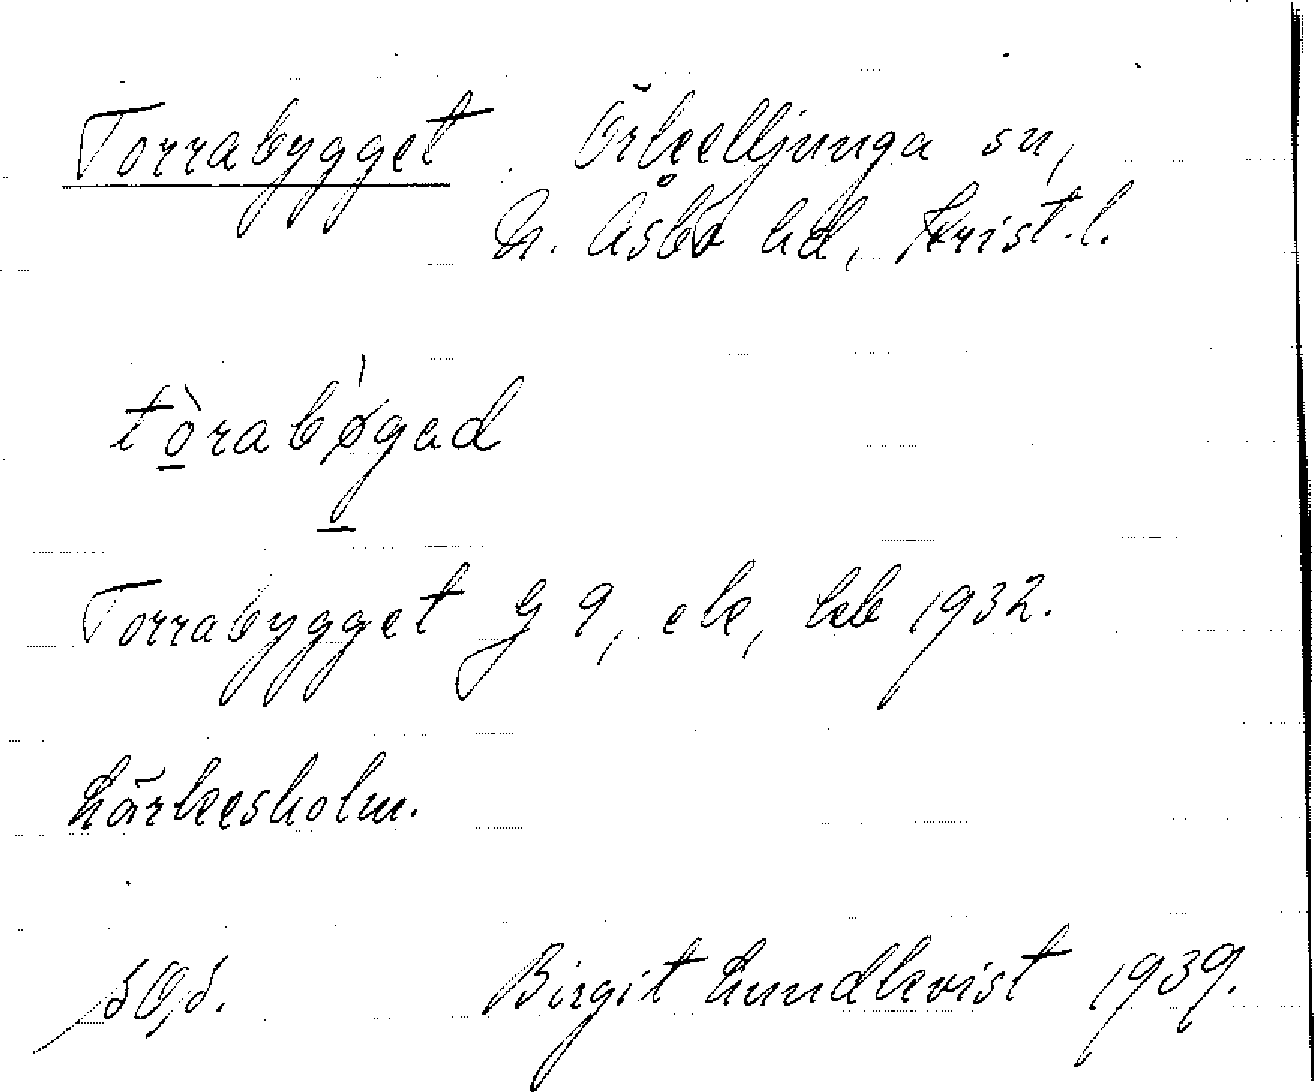 Torrabygget. Örkelljunga sn,
N. Åsbo hd, Krist. l.
tòrabǿgad
Torrabygget G 9, ek, kb 1932.
Lärkesholm.
Birgit Lundkvist 1939.